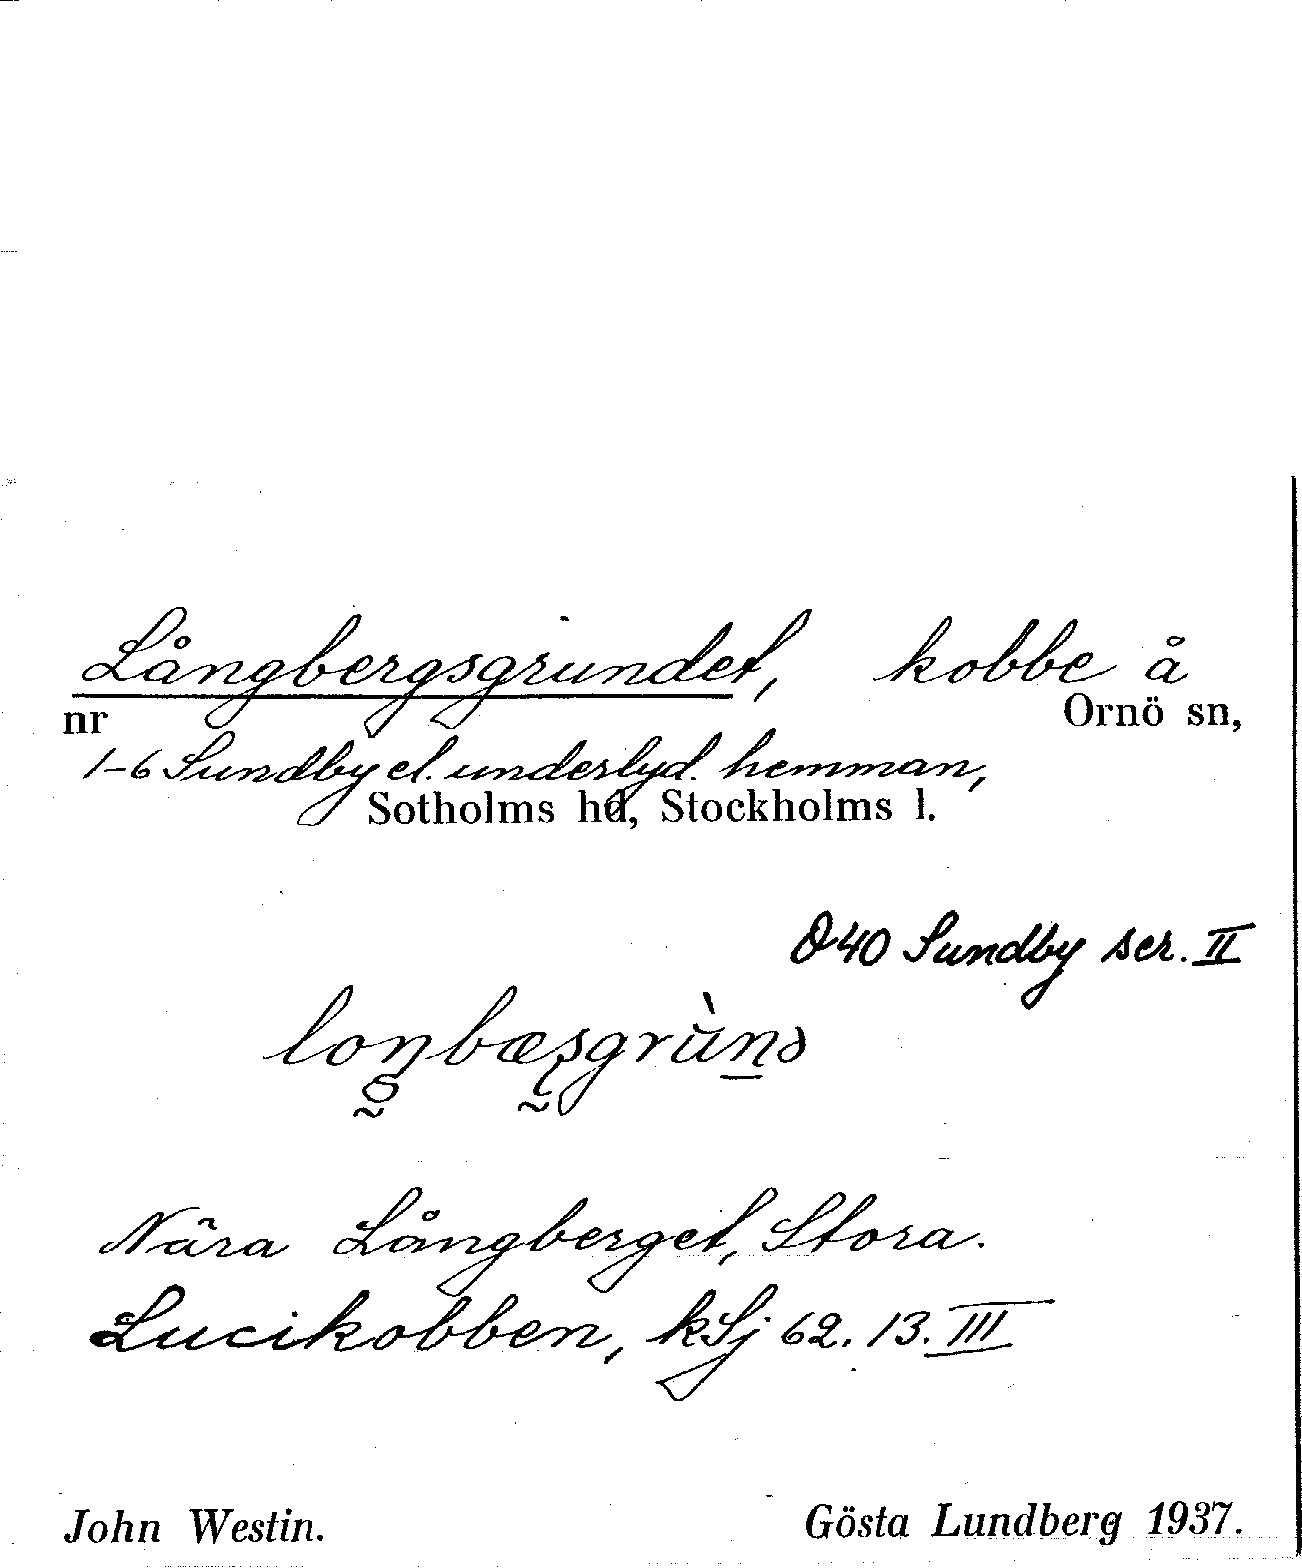 Långbergsgrundet, kobbe å
nr Ornö sn,
1-6 Sundby el. underlyd. hemman,
Sotholms hd, Stockholms l.
040 Sundby ser. II
Nära Långberget, Stora.
Lucikobben, kSj 62. 13. III
John Westin. Gösta Lundberg 1937.